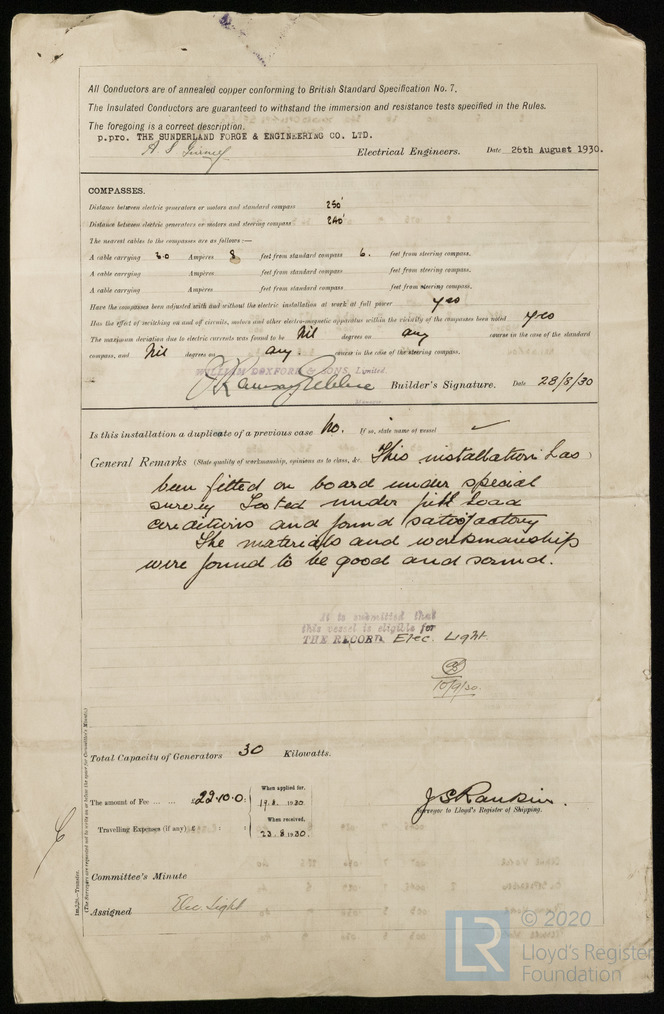 All Conductors are of annealed copper conforming to British Standard Specification No. 7.
The Insulated Conductors are guaranteed to withstand the immersion and resistance tests specified in the Rules.
The foregoing is a correct description.
p.pro. THE SUNDERLAND FORGE & ENGINEERING CO. LTD.
Electrical Engineers. Date 26th August 1930.
COMPASSES.
Distance between electric generators or motors and standard compass 250'
Distance between electric generators or motors and steering compass 240'
The nearest cables to the compasses are as follows:—
A cable carrying Ampères 8 feet from standard compass 6. feet from steering compass.
A cable carrying Ampères feet from standard compass feet from steering compass.
A cable carrying Ampères feet from standard compass feet from steering compass.
Have the compasses been adjusted with and without the electric installation at work at full power yes
Has the effect of switching on and off circuits, motors and other electro-magnetic apparatus within the vicinity of the compasses been noted yes
The maximum deviation due to electric currents was found to be Nil degrees on any course in the case of the standard
compass, and Nil degrees on any. course in the case of the steering compass.
WILLIAM DOXFORD & SONS, Limited.
Builder's Signature. Date 28/8/30
Is this installation a duplicate of a previous case No. If so, state name of vessel
General Remarks (State quality of workmanship, opinions as to class, &c. This installation has
been fitted on board under special
survey tested under full load
conditions and found satisfactory
The materials and workmanship
were found to be good and sound.
It is submitted that
this vessel is eligible for
THE RECORD. Elec. Light.
10/9/30.
Total Capacity of Generators 30 Kilowatts.
The amount of Fee ... ... £22.10.0: When applied for, 19.8.1930.
Travelling Expenses (if any) £ : : When received, 23.8.1930.
J S Rankin.
Surveyor to Lloyd's Register of Shipping.
Committee's Minute
Assigned Elec. Light
Transfer.
LR © 2020
Lloyd's Register
Foundation